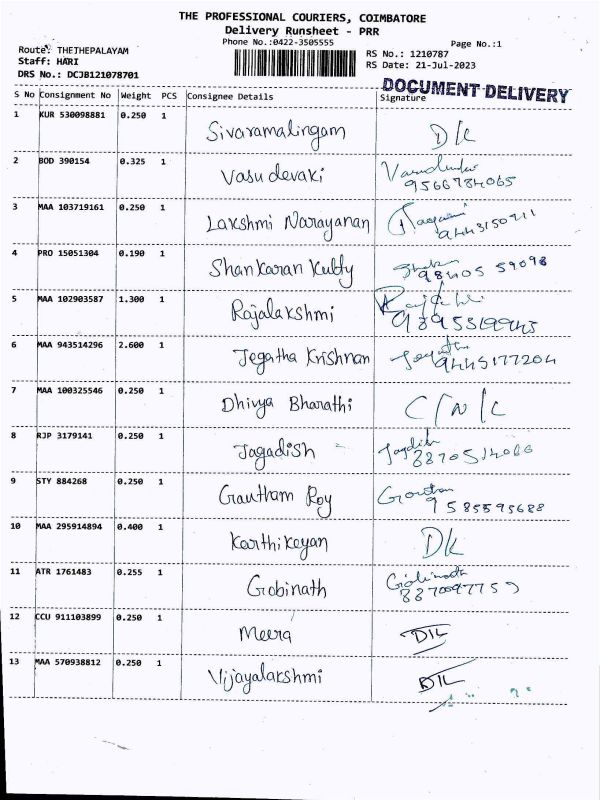 THE PROFESSIONAL COURIERS, COIMBATORE
Delivery Runsheet - PRR
Phone No.:0422-3505555
Page No.:1
Route: THETHEPALAYAM
RS No.: 1210787
Staff: HARI
RS Date: 21-Jul-2023
DRS No.: DCJB121078701
DOCUMENT DELIVERY
S No Consignment No Weight PCS Consignee Details Signature
1 KUR 530098881 0.250 1 Sivaramalingam DK
2 BOD 390154 0.325 1 Vasudevaki
9566784065
3 MAA 103719161 0.250 1 Lakshmi Narayanan
9443150711
4 PRO 15051304 0.190 1 Shankaran Kutty
98405 59098
5 MAA 102903587 1.300 1 Rajalakshmi
6 MAA 943514296 2.600 1 Jegatha Krishnan
9445177204
7 MAA 100325546 0.250 1 Dhivya Bharathi C/N/L
8 RJP 3179141 0.250 1 Jagadish
9 STY 884268 0.250 1 Grautham Roy
9585595688
10 MAA 295914894 0.400 1 Karthikeyan DK
11 ATR 1761483 0.255 1 Gobinath Gobinath
8870097759
12 CCU 911103899 0.250 1 Meera
13 MAA 570938812 0.250 1 Vijayalakshmi